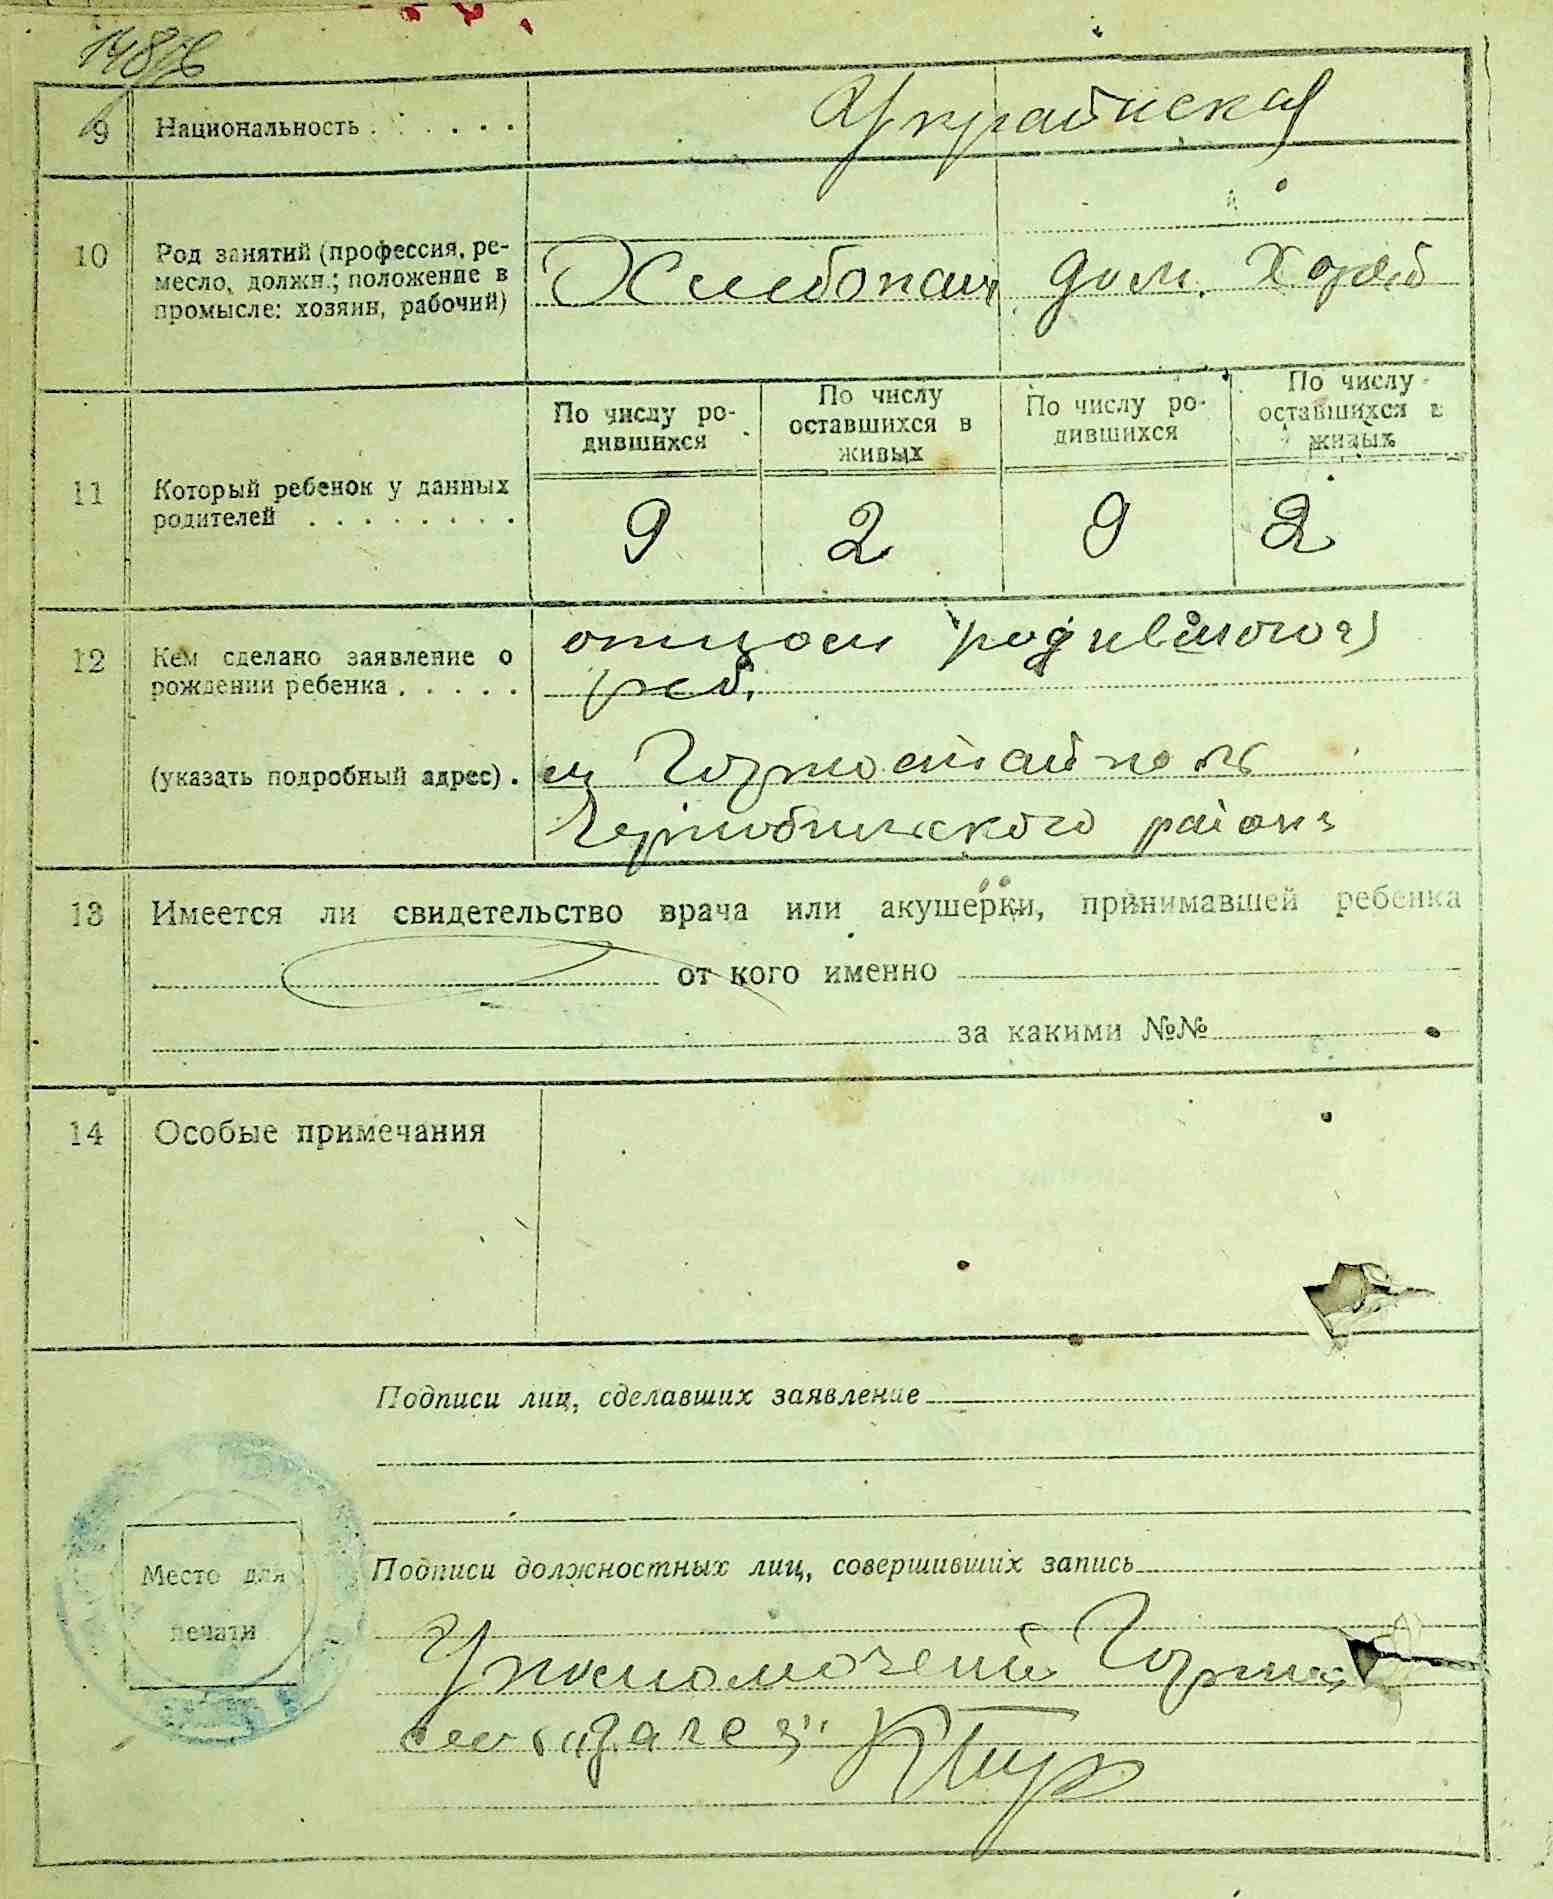 9 Национальность . . . . . . Украинская
10 Род занятий (профессия, ре-
месло, должн.; положение в
промысле: хозяин, рабочий)
Хлебопаш дом. Хозяй
По числу ро-
дившихся
По числу
оставшихся в
живых
По числу ро-
дившихся
По числу
оставшихся в
живых
11 Который ребенок у данных
родителей . . . . . . . .
9 2 9 2
12 Кем сделано заявление о
рождении ребенка . . . . .
отцом родившогося
реб.
(указать подробный адрес) . м Горностайполь
Чернобильского района
13 Имеется ли свидетельство врача или акушерки, принимавшей ребенка
от кого именно
за какими №№
14 Особые примечания
Подписи лиц, сделавших заявление
Место для
печати
Подписи должностных лиц, совершивших запись
Уполномочений